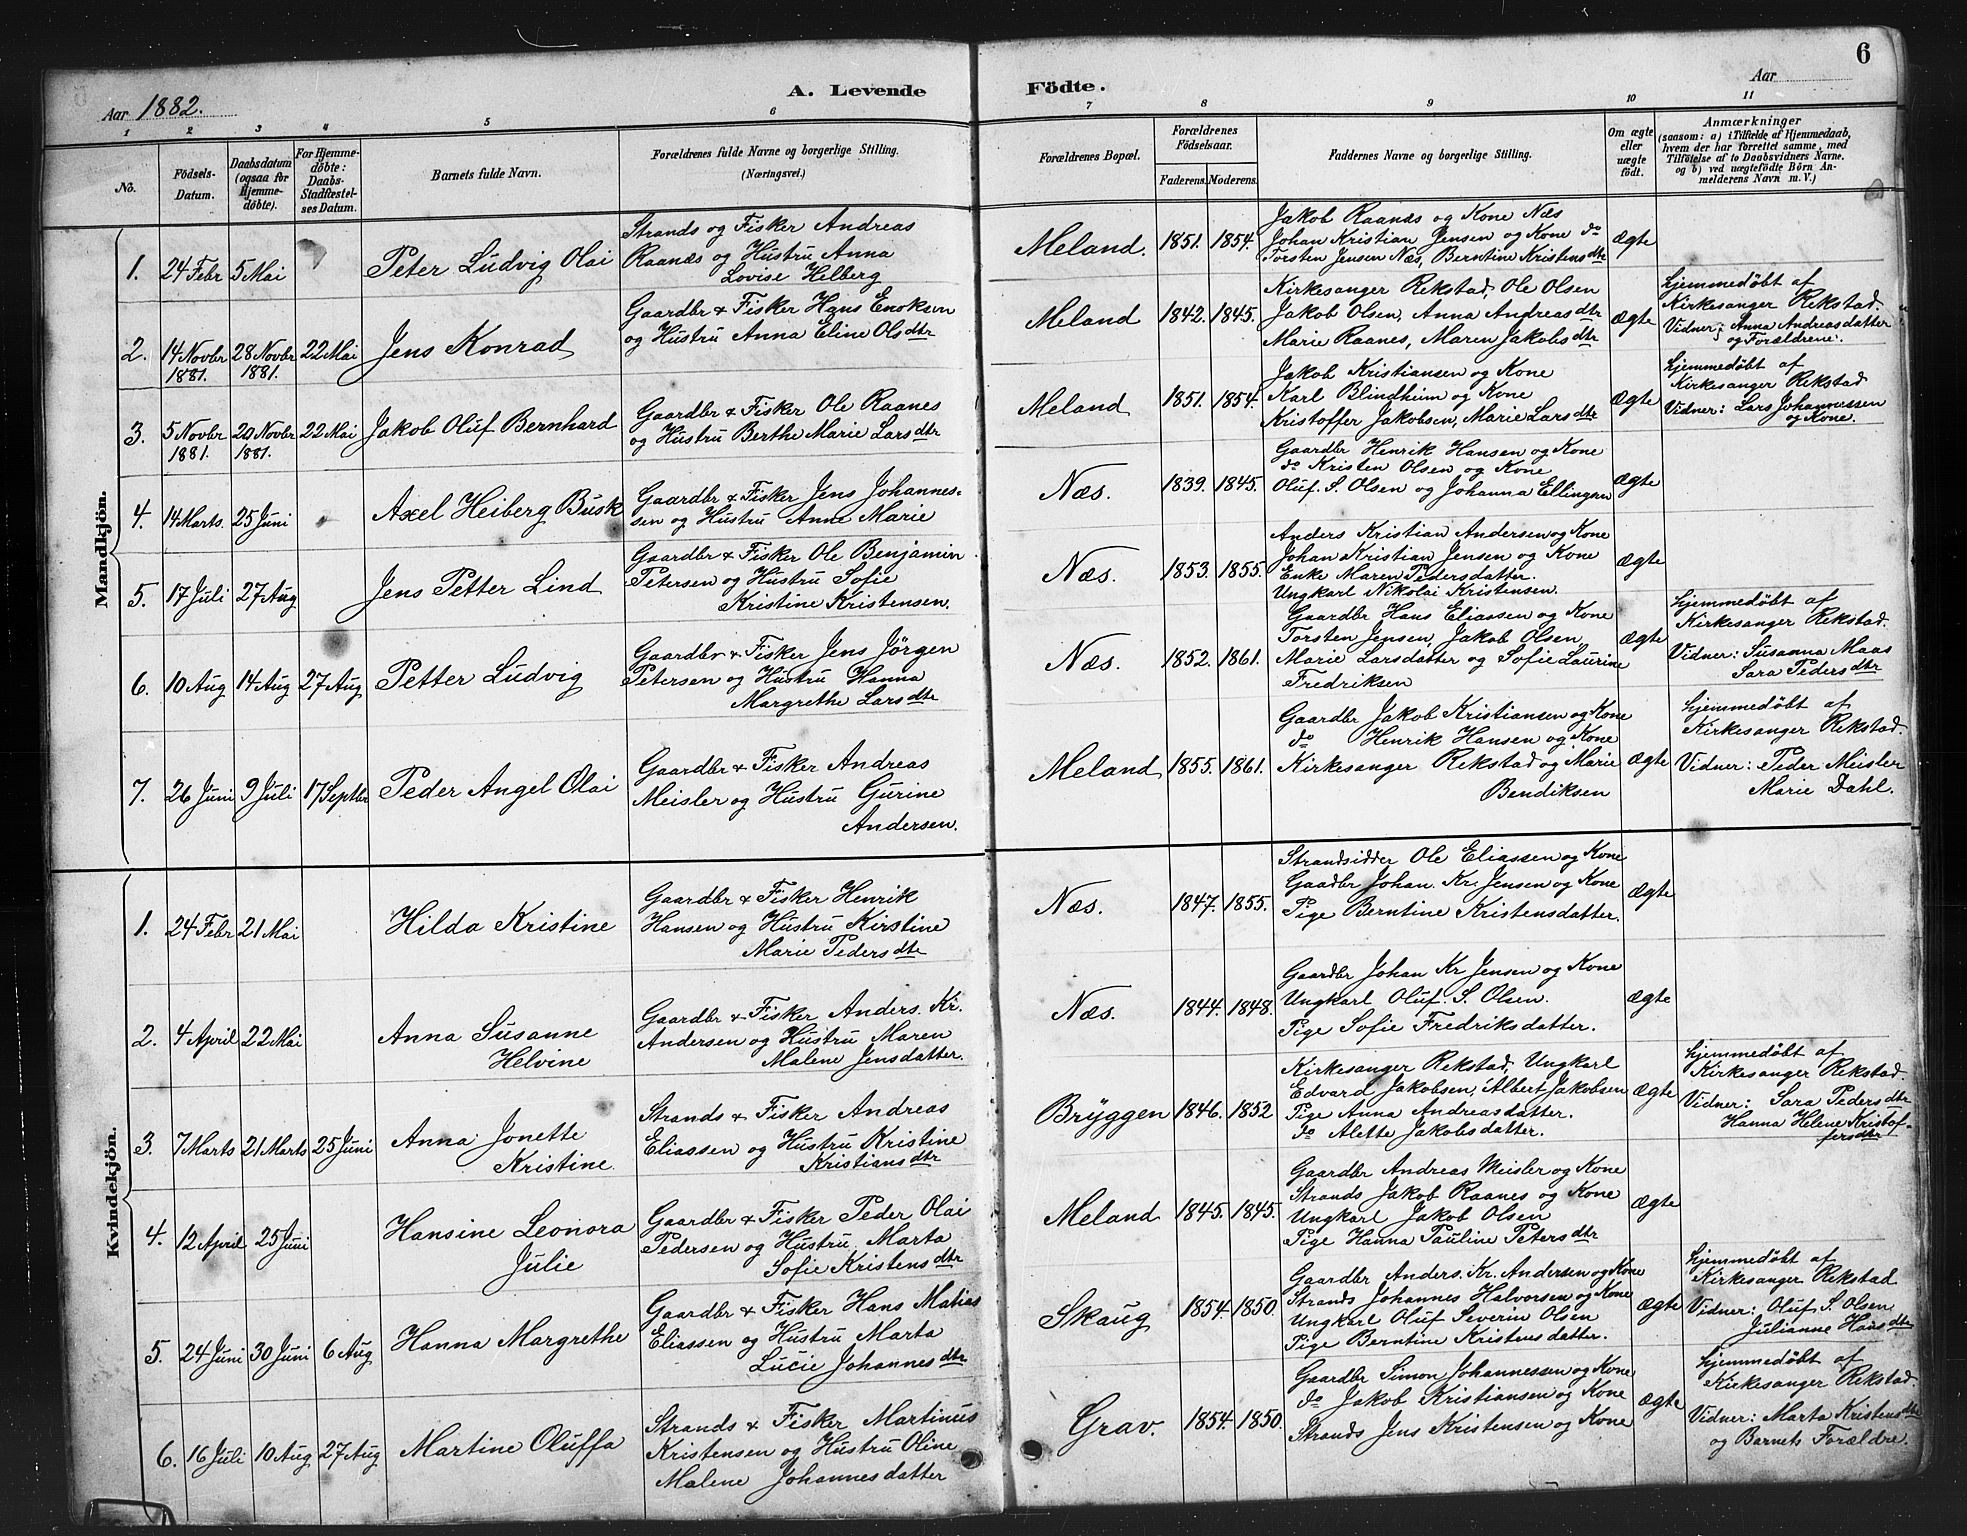 6
Aar 1882.
A. Levende Födte.
Aar
1 2 3 4 5 6 7 8 9 10 11
No.
Födsels-
Datum.
Daabsdatum
(ogsaa for
Hjemme-
döbte).
For Hjemme-
döbte:
Daabs-
Stadfæstel-
ses Datum.
Barnets fulde Navn.
Forældrenes fulde Navne og borgerlige Stilling.
(Næringsvei.)
Forældrenes Bopæl.
Forældrenes
Födselsaar.
Faderens. Moderens.
Faddernes Navne og borgerlige Stilling.
Om ægte
eller
uægte
födt.
Anmærkninger
(saasom: a) i Tilfælde af Hjemmedaab,
hvem der har forrettet samme, med
Tilföielse af to Daabsvidners Navne.
og b) ved uægtefödte Börn An-
melderens Navn m. V.)
Mandkjön.
1. 24 Febr 5 Mai
Peter Ludvig Olai
Strands og Fisker Andreas
Raanæs og Hustru Anna
Lovise Helberg
Meland. 1851. 1854.
Jakob Raanæs og Kone Næs
Johan Kristian Jensen og Kone do
Torsten Jensen Næs, Berntine Kristensdtr
Ægte
2. 14 Novbr 28 Novbr 22 Mai
1881. 1881.
Jens Konrad
Gaardbr & Fisker Hans Enoksen
og Hustru Anna Eline Olsdtr
Meland 1842. 1845.
Kirkesanger Rekstad, Ole Olsen
Jakob Olsen, Anna Andreasdtr
Marie Raanes, Maren Jakobsdtr
Ægte
Hjemmedøbt af
Kirkesanger Rekstad.
Vidner: Anna Andreasdatter
og Forældrene.
3. 5 Novbr 20 Novbr 22 Mai
1881. 1881.
Jakob Oluf Bernhard
Gaardbr & Fisker Ole Raanes
og Hustru Berthe Marie Larsdtr
Meland 1851. 1854.
Jakob Kristiansen og Kone
Karl Blindheim og Kone
Kristoffer Jakobsen, Marie Larsdtr
Ægte
Hjemmedøbt af
Kirkesanger Rekstad
Vidner: Lars Johannessen
og Kone.
4. 14 Marts. 25 Juni
Axel Heiberg Busk
Gaardbr & Fisker Jens Johannes-
sen og Hustru Anne Marie
Næs. 1839. 1845.
Gaardbr Henrik Hansen og Kone
do Kristen Olsen og Kone
Oluf. S. Olsen og Johanna Ellingsen
Ægte
5. 17 Juli 27 Aug
Jens Petter Lind
Gaardbr & Fisker Ole Benjamin
Petersen og Hustru Sofie
Kristine Kristensen.
Næs. 1853. 1855.
Anders Kristian Andersen og Kone
Johan Kristian Jensen og Kone
Enke Maren Pedersdatter.
Ungkarl Nikolai Kristensen.
Ægte
6. 10 Aug 14 Aug 27 Aug
Petter Ludvig
Gaardbr & Fisker Jens Jörgen
Petersen og Hustru Hanna
Margrethe Larsdtr
Næs. 1852. 1861.
Gaardbr Hans Eliassen og Kone
Torsten Jensen, Jakob Olsen
Marie Larsdatter og Sofie Laurine
Fredriksen
Ægte
Hjemmedøbt af
Kirkesanger Rekstad.
Vidner: Susanna Maas
Sara Pedersdtr
7. 26 Juni 9 Juli 17 Septbr
Peder Angel Olai
Gaardbr & Fisker Andreas
Meisler og Hustru Gurine
Andersen.
Meland 1855. 1861.
Gaardbr Jakob Kristiansen og Kone
do Henrik Hansen og Kone
Kirkesanger Rekstad og Marie
Bendiksen
Ægte
Hjemmedøbt af
Kirkesanger Rekstad.
Vidner: Peder Meisler
Marie Dahl.
Kvindekjön.
1. 24 Febr 21 Mai
Hilda Kristine
Gaardbr & Fisker Henrik
Hansen og Hustru Kirstine
Marie Pedersdtr
Næs. 1847. 1855.
Strandsidder Ole Eliassen og Kone
Gaadbr Johan. Kr. Jensen og Kone
Pige Berntine Kristensdatter.
Ægte
2. 4 April 22 Mai
Anna Susanne
Helvine
Gaardbr & Fisker Anders. Kr.
Andersen og Hustru Maren
Malene Jensdatter.
Næs. 1844. 1848.
Gaardbr Johan Kr Jensen og Kone
Ungkarl Oluf. S. Olsen.
Pige Sofie Fredriksdatter.
Ægte
3. 7 Marts 21 Marts 25 Juni
Anna Jonette
Kristine
Strands & Fisker Andreas
Eliassen og Hustru Kristine
Kristiansdtr
Brÿggen 1846. 1852
Kirkesanger Rekstad, Ungkarl
Edvard Jakobsen, Albert Jakobsen
Pige Anna Andreasdatter.
do Alette Jakobsdatter.
Ægte
Hjemmedøbt af
Kirkesanger Rekstad.
Vidner: Sara Pedersdtr
Hanna Helene Kristof-
fersdtr
4. 12 April 25 Juni
Hansine Leonora
Julie
Gaardbr & Fisker Peder Olai
Pedersen og Hustru. Marta
Sofie Kristensdtr
Meland 1845. 1845.
Gaardbr Andreas Meisler og Kone
Strands Jakob Raanes og Kone
Ungkarl Jakob Olsen
Pige Hanna Pauline Petersdtr
Ægte
5. 24 Juni 30 Juni 6 Aug
Hanna Margrethe
Gaardbr & Fisker Hans Matias
Eliassen og Hustru Marta
Lucie Johannesdtr
Skaug 1854. 1850
Gaardbr Anders. Kr. Andersen og Kone
Strands Johannes Halvorsen og Kone
Ungkarl Oluf Severin Olsen
Pige Berntine Kristensdatter.
Ægte
Hjemmedøbt af
Kirkesanger Rekstad
Vidner: Oluf S. Olsen
Julianne Hansdtr
6. 16 Juli 10 Aug 27 Aug
Martine Oluffa
Strands & Fisker Martinus
Kristensen og Hustru Oline
Malene Johannesdatter
Grav. 1854. 1850.
Gaardbr Simon Johannessen og Kone
do Jakob Kristiansen og Kone
Strands Jens Kristensen og Kone
Ægte
Hjemmedøbt af
Kirkesanger Rekstad.
Vidner: Marta Kristensdtr
og Barnets Forældre.